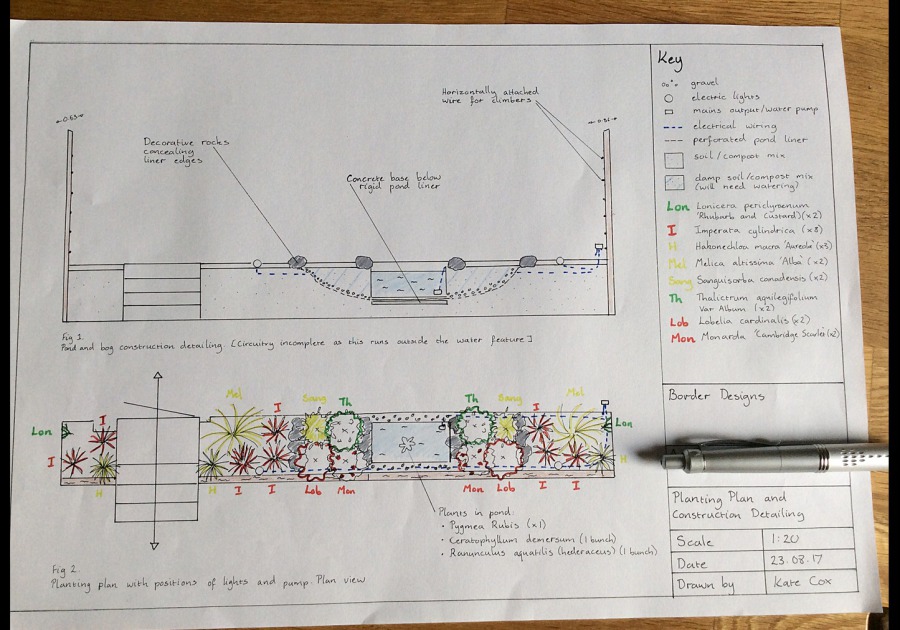 Key
gravel
electric lights
mains output/water pump
electrical wiring
perforated pond liner
soil/compost mix
damp soil/compost mix
(will need watering?)
Lon Lonicera periclymenum
'Rhubarb and Custard' (x2)
I Imperata cylindrica (x8)
H Hakonechloa macra 'Aureola' (x3)
Mel Melica altissima 'Alba' (x2)
Sang Sanguisorba canadensis (x2)
Th Thalictrum aquilegifolium
Var Album (x2)
Lob Lobelia cardinalis (x2)
Mon Monarda 'Cambridge Scarlet' (x2)
Horizontally attached
wire for climbers
Decorative rocks
concealing
liner edges
Concrete base below
rigid pond liner
Fig 1.
Pond and bog construction detailing. [Circuitry incomplete as this runs outside the water feature]
Mel
I
Sang
Th
Th
Sang
I
Mel
I
Lon
Lon
I
H
H
H
I
I
Lob
Mon
Mon
Lob
I
I
Plants in pond:
• Pygmea Rubis (x1)
• Ceratophyllum demersum (1 bunch)
• Ranunculus aquatilis (hederaceus) (1 bunch)
Fig 2.
Planting plan with positions of lights and pump. Plan view
Border Designs
Planting Plan and
Construction Detailing
Scale 1:20
Date 23.08.17
Drawn by Kate Cox